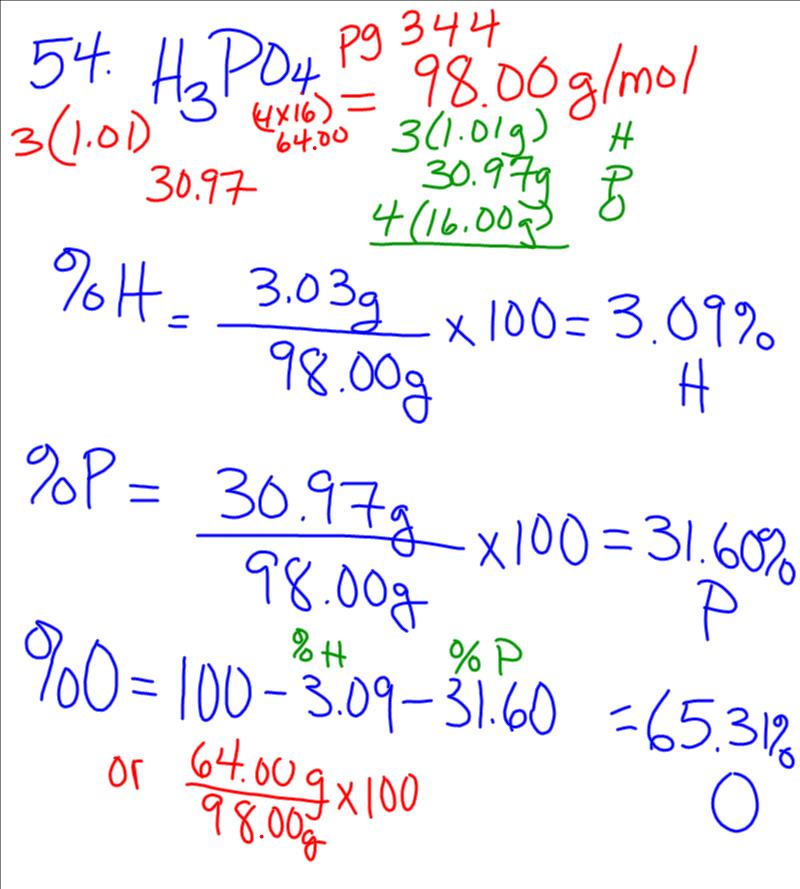 54. H₃PO₄ pg 344
= 98.00 g/mol
3(1.01) (4x16) 3(1.01g) H
64.00
30.97 30.97g P
4(16.00g) O
%H = 3.03g / 98.00g x 100 = 3.09%
H
%P = 30.97g / 98.00g x 100 = 31.60%
P
%H %P
%O = 100 - 3.09 - 31.60 = 65.31%
O
or 64.00g / 98.00g x 100